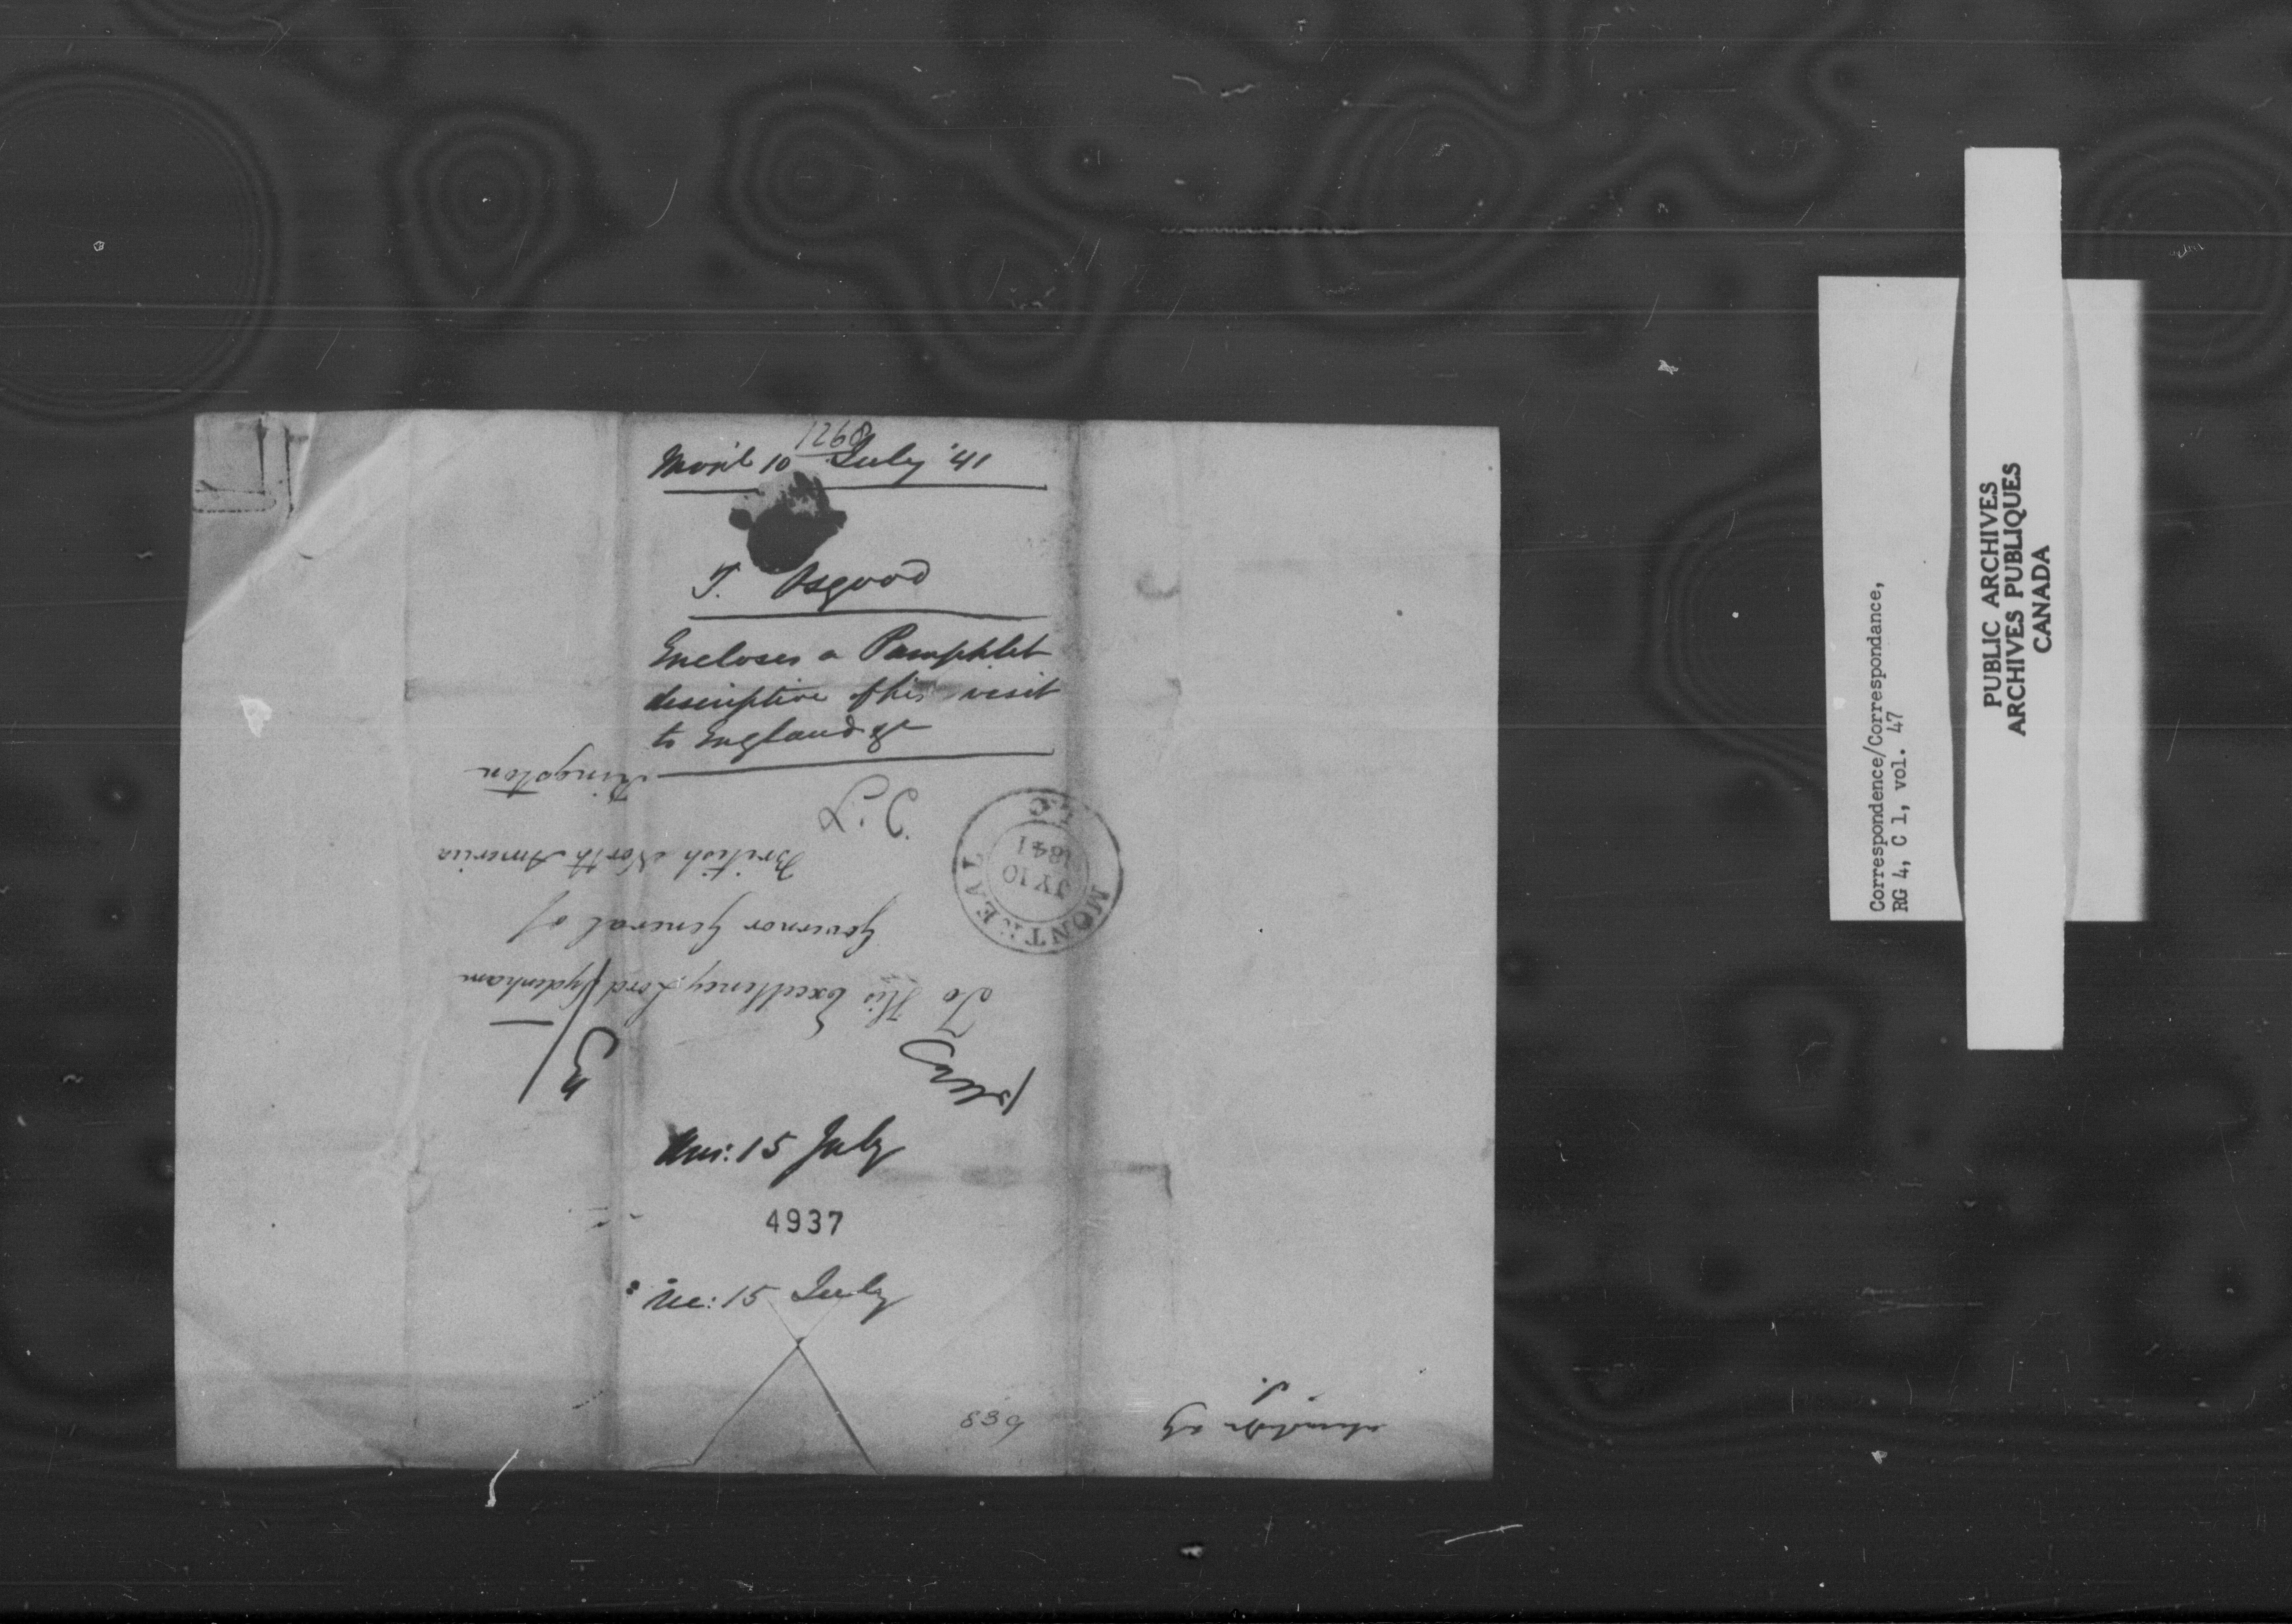 1268
Mont'l 10 July '41
T. Osgood
Encloses a Pamphlet
descriptive of his visit
to England &c
To His Excellency Lord Sydenham
Governor General of
British North America
Kingston
MONTREAL
JY 10
1841
L.C
Ans: 15 July
4937
Rec: 15 July
839
Correspondence/Correspondance,
RG 4, C 1, vol. 47
PUBLIC ARCHIVES
ARCHIVES PUBLIQUES
CANADA